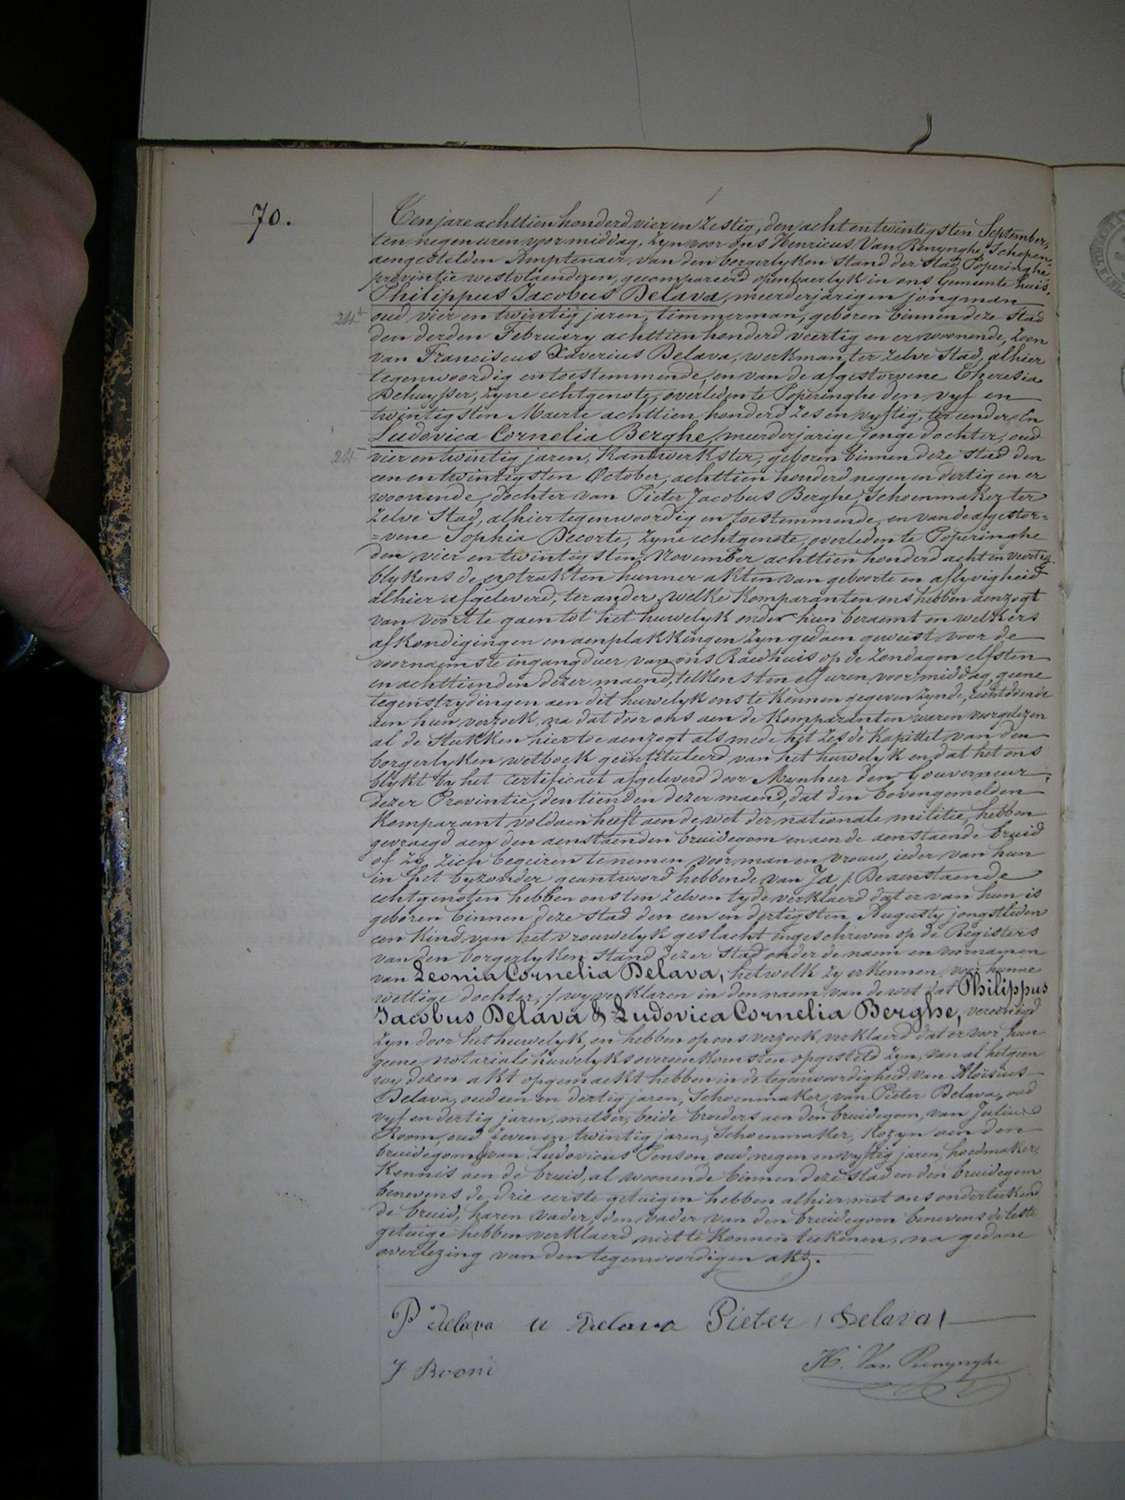 70.
Ten jare achttien honderd vier en zestig, den acht en twintigsten September,
ten negen uren voor middag, zyn voor ons Henricus Van Renynghe, Schepen,
aengestelden Amptenaer, van den borgerlyken Stand der Stad Poperinghe,
provintie westvlaenderen, gecompareerd openbaerlyk in ons Gemeente huis,
Philippus Jacobus Delava, meerderjarigen jongman
24st
oud vier en twintig jaren, timmerman, geboren binnen deze Stad
den derden February achttien honderd veertig en er woonende, Zoon
van Franciscus Xaverius Delava, werkman, ter zelve Stad, alhier
tegenwoordig en toestemmende, en van de afgestorvene Theresia
Dehuysser, zyne echtgenote, overleden te Poperinghe den vyf en
twintigsten Maerte achttien honderd zes en vyftig, ter eender, En
Ludovica Cornelia Berghe, meerderjarige jonge dochter, oud
24
vier en twintig jaren, Kantwerkster, geboren binnen deze Stad den
een en twintigsten October, achttien honderd negen en dertig en er
woonende, dochter van Pieter Jacobus Berghe, Schoenmaker, ter
zelve Stad, alhier tegenwoordig en toestemmende, en van de afgestor=
=vene Sophia Decorte, zyne echtgenote, overleden te Poperinghe
den vier en twintigsten November achttien honderd acht en veertig
blykens de extrakten hunner akten van geboorte en aflyvigheid
alhier afgeleverd, ter ander, welke Komparanten ons hebben aenzogt
van voort te gaen tot het huwelyk onder hun beraemt en welkers
afkondigingen en aenplakkingen zyn gedaen geweest voor de
voornaemste ingangdeur van ons Raedhuis op de Zondagen elfsten
en achttienden dezer maend, telkens ten elf uren, voor middag, geene
tegenstrydingen aen dit huwelyk ons te kennen gegeven zynde,
aen hun verzoek, na dat door ons aen de Komparanten waren voorgelezen
al de Stukken hier toe aenzogt als mede het zesde Kapittel van den
borgerlyken wetboek geïntituleerd van het huwelyk en dat het ons
blykt by het certificaet afgeleverd door Mynheer den Gouverneur
dezer Provintie, den tienden dezer maend, dat den bovengemelden
Komparant voldaen heeft aen de wet der nationale militie, hebben
gevraegd aen den aenstaenden bruidegom en aen de aenstaende bruid
of zy zich begeiren te nemen voor man en vrouw, ieder van hun
in het byzonder geantwoord hebbende van Ja / De aenstaende
echtgenoten hebben ons ten zelven tyde verklaerd dat er van hun is
geboren binnen deze Stad den een en dertigsten Augusty jongstleden
een Kind van het vrouwelyk geslacht ingeschreven op de Registers
van den borgerlyken Stand dezer Stad onder de naem en voornamen
van Leonia Cornelia Delava, hetwelk zy erkennen voor hunne
wettige dochter, / wy verklaren in den naem van de wet dat Philippus
Jacobus Delava & Ludovica Cornelia Berghe, vereenigd
zyn door het huwelyk, en hebben op ons verzoek verklaerd dat er voor hun
geene notariale huwelyksovereenkomsten opgesteld zyn, van al hetgeen
wy dezen akt opgemaekt hebben in de tegenwoordigheid van Aloisius
Delava, oud een en dertig jaren, Schoenmaker, van Pieter Delava, oud
vyf en dertig jaren, metser, beide broeders aen den bruidegom, van Julius
Room, oud zeven en twintig jaren, Schoenmaker, Kozyn aen den
bruidegom, van Ludovicus Penson oud negen en vyftig jaren, hoedmaker,
Kennis aen de bruid, al woonende binnen deze Stad en den bruidegom
benevens de drie eerste getuigen hebben alhier met ons onderteekend,
de bruid, haren vader, den vader van den bruidegom benevens de leste
getuige hebben verklaerd niet te konnen teekenen, na gedane
overlezing van den tegenwoordigen akt.
P Delava a Delava Pieter Delava
J Room H. Van Renynghe